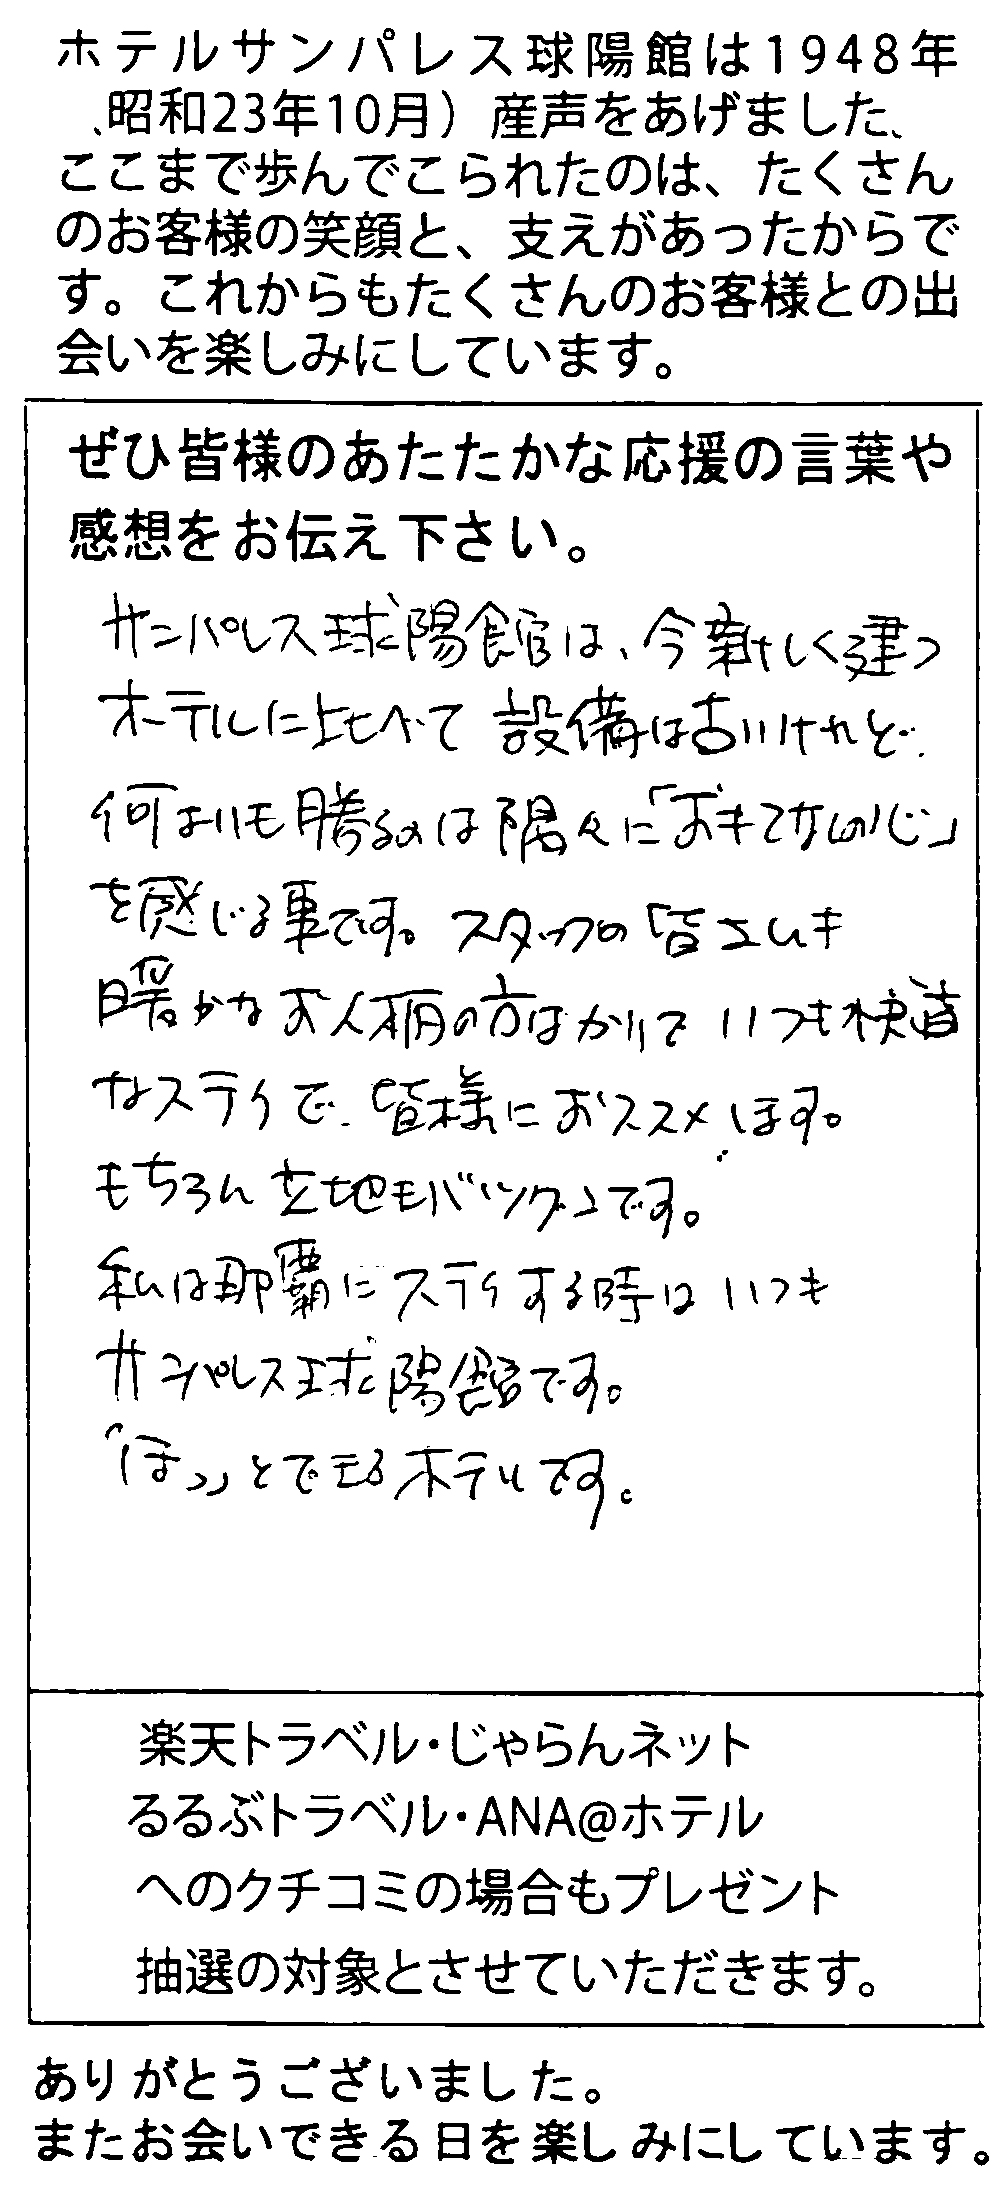 ホテルサンパレス球陽館は1948年
、昭和23年10月）産声をあげました、
ここまで歩んでこられたのは、たくさん
のお客様の笑顔と、支えがあったからで
す。これからもたくさんのお客様との出
会いを楽しみにしています。
ぜひ皆様のあたたかな応援の言葉や
感想をお伝え下さい。
サンパレス球陽館は、今新しく建つ
ホテルに比べて 設備は古いけれど、
何よりも勝るのは隅々に「おもてなしの心」
を感じる事です。スタッフの皆さんも
暖かなお人柄の方ばかりで いつも快適
なステイで、皆様におススメします。
もちろん立地もバツグンです。
私は那覇にステイする時は いつも
サンパレス球陽館です。
「ほっ」とできるホテルです。
楽天トラベル・じゃらんネット
るるぶトラベル・ANA@ホテル
へのクチコミの場合もプレゼント
抽選の対象とさせていただきます。
ありがとうございました。
またお会いできる日を楽しみにしています。